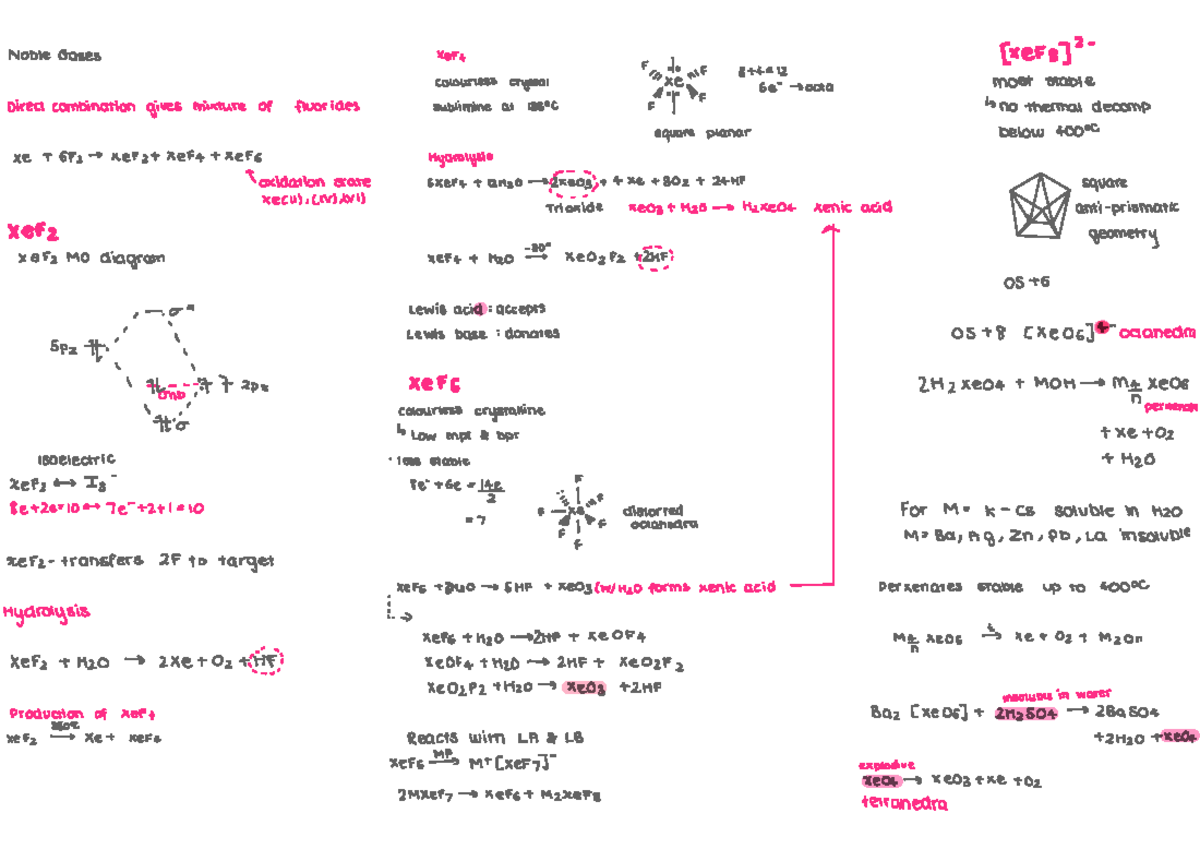 Noble Gases
Direct combination gives mixture of fluorides
Xe + 6F2 → XeF2 + XeF4 + XeF6
oxidation state
Xe(II), (IV), (VI)
XeF2
XeF2 MO diagram
σ*
5pz
2pz
σ
isoelectric
XeF2 ↔ I3⁻
8e + 2e = 10 ↔ 7e⁻ + 2 + 1 = 10
XeF2 - transfers 2F to target
Hydrolysis
XeF2 + H2O → 2Xe + O2 + HF
Production of XeF4
XeF2 → Xe + XeF4
XeF4
colourless crystal
8 + 4 = 12
6e⁻ → octa
F Xe F
F F
square planar
Hydrolysis
→ 2XeO3 + 4Xe + 3O2 + 24HF
Trioxide XeO3 + H2O → H2XeO4 xenic acid
XeF4 + H2O → XeO2F2 + 2HF
Lewis acid : accepts
Lewis base : donates
XeF6
colourless crystalline
↳ Low mpt & bpt
· less stable
8e⁻ + 6e = 14e/2
= 7
F
F Xe F
F F
F
distorted
octahedra
XeF6 + 3H2O → 6HF + XeO3 (w/ H2O forms xenic acid
XeF6 + H2O → 2HF + XeOF4
XeOF4 + H2O → 2HF + XeO2F2
XeO2F2 + H2O → XeO3 + 2HF
Reacts with LA & LB
MF
XeF6 → M⁺[XeF7]⁻
2MXeF7 → XeF6 + M2XeF8
[XeF8]²⁻
most stable
↳ no thermal decomp
below 400°C
square
anti-prismatic
geometry
OS +6
OS +8 [XeO6]⁴⁻ octahedra
2H2XeO4 + MOH → M4/n XeO6
+ Xe + O2
+ H2O
For M = K - Cs soluble in H2O
M = Ba, Ag, Zn, Pb, La insoluble
Perxenates stable up to 400°C
M4/n XeO6 → Xe + O2 + M2On
insoluble in water
Ba2 [XeO6] + 2H2SO4 → 2BaSO4
+ 2H2O + XeO4
explosive
XeO4 → XeO3 + Xe + O2
tetrahedra